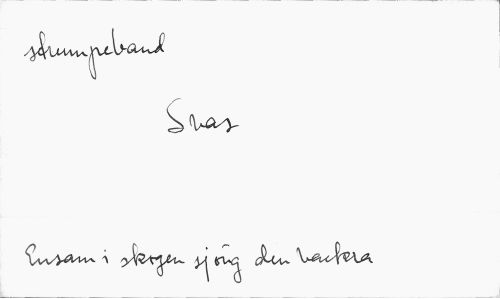 strumpeband
Svas
Ensam i skogen sjöng den vackra